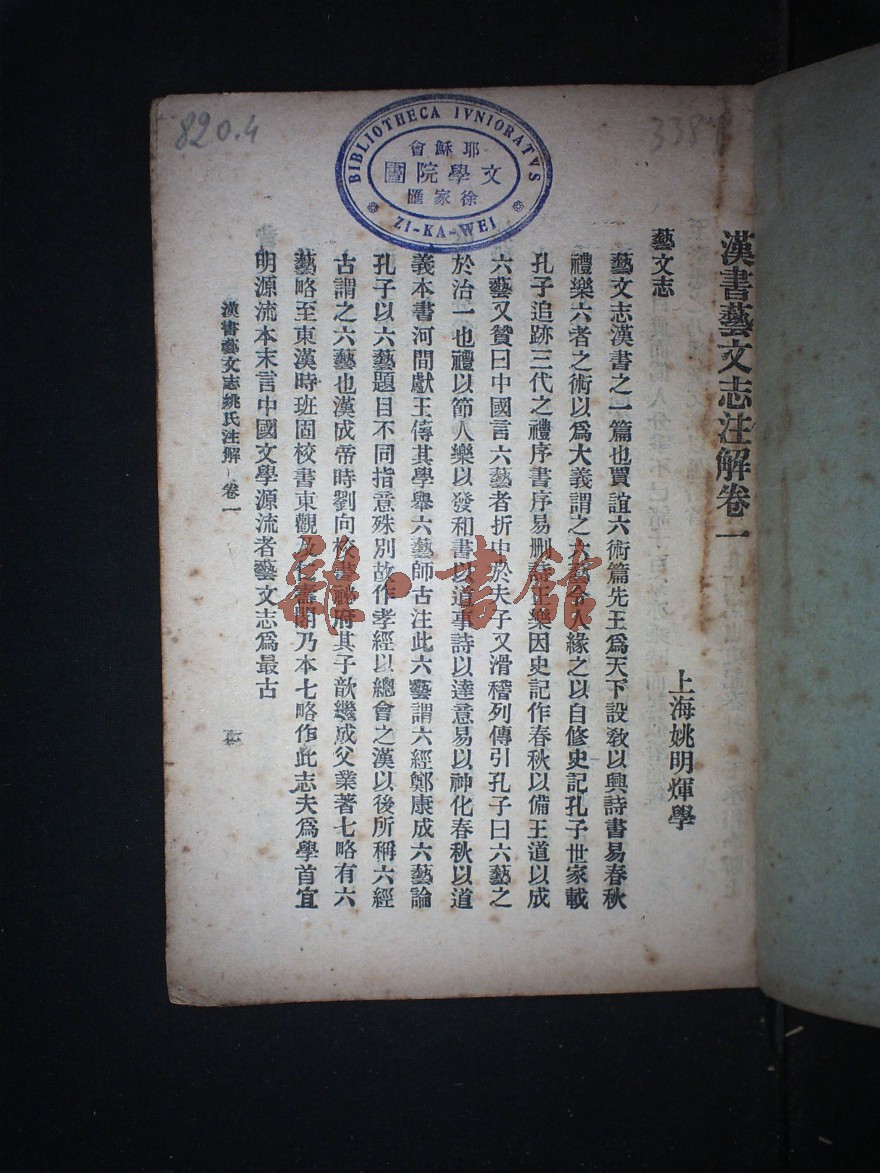 820.4
338
BIBLIOTHECA IVNIORATVS
耶穌會
文學院圖
徐家匯
ZI-KA-WEI
漢書藝文志注解卷一
上海姚明煇學
藝文志
藝文志漢書之一篇也賈誼六術篇先王爲天下設敎以興詩書易春秋
禮樂六者之術以爲大義謂之六藝令人緣之以自修史記孔子世家載
孔子追跡三代之禮序書序易刪詩正樂因史記作春秋以備王道以成
六藝又贊曰中國言六藝者折中於夫子又滑稽列傳引孔子曰六藝之
於治一也禮以節人樂以發和書以道事詩以達意易以神化春秋以道
義本書河間獻王傳其學舉六藝師古注此六藝謂六經鄭康成六藝論
孔子以六藝題目不同指意殊別故作孝經以總會之漢以後所稱六經
古謂之六藝也漢成帝時劉向校書祕府其子歆繼成父業著七略有六
藝略至東漢時班固校書東觀及仁壽闥乃本七略作此志夫爲學首宜
明源流本末言中國文學源流者藝文志爲最古
漢書藝文志姚氏注解 卷一
龍·書館